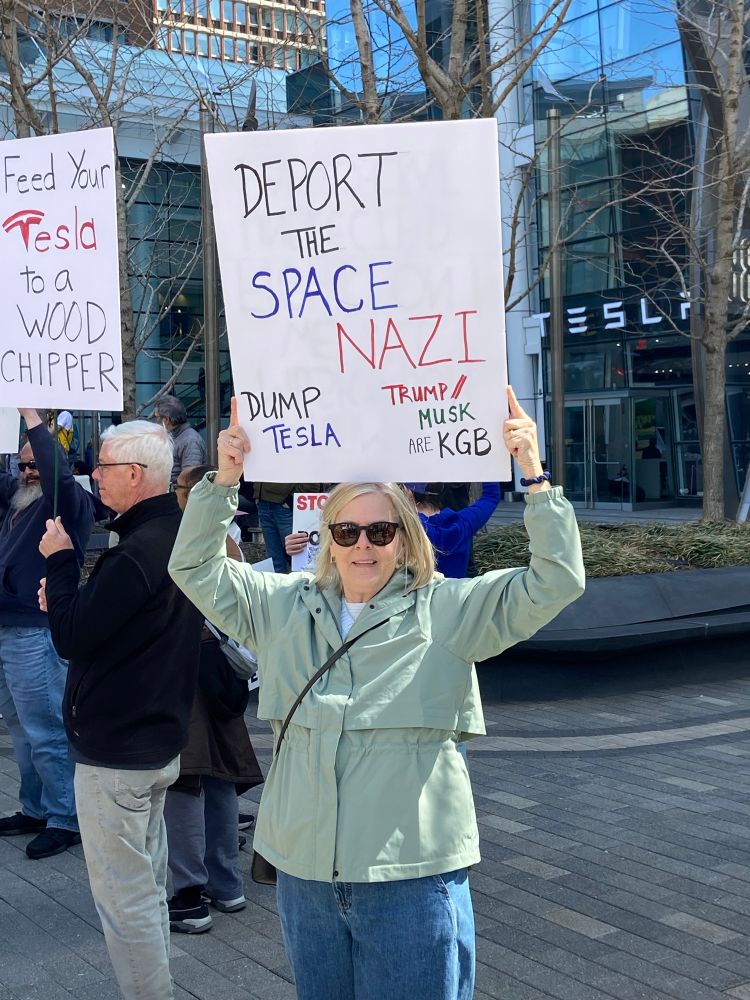 Feed Your
Tesla
to a
WOOD
CHIPPER
DEPORT
THE
SPACE
NAZI
DUMP
TESLA
TRUMP//
MUSK
ARE KGB
TESLA
STO